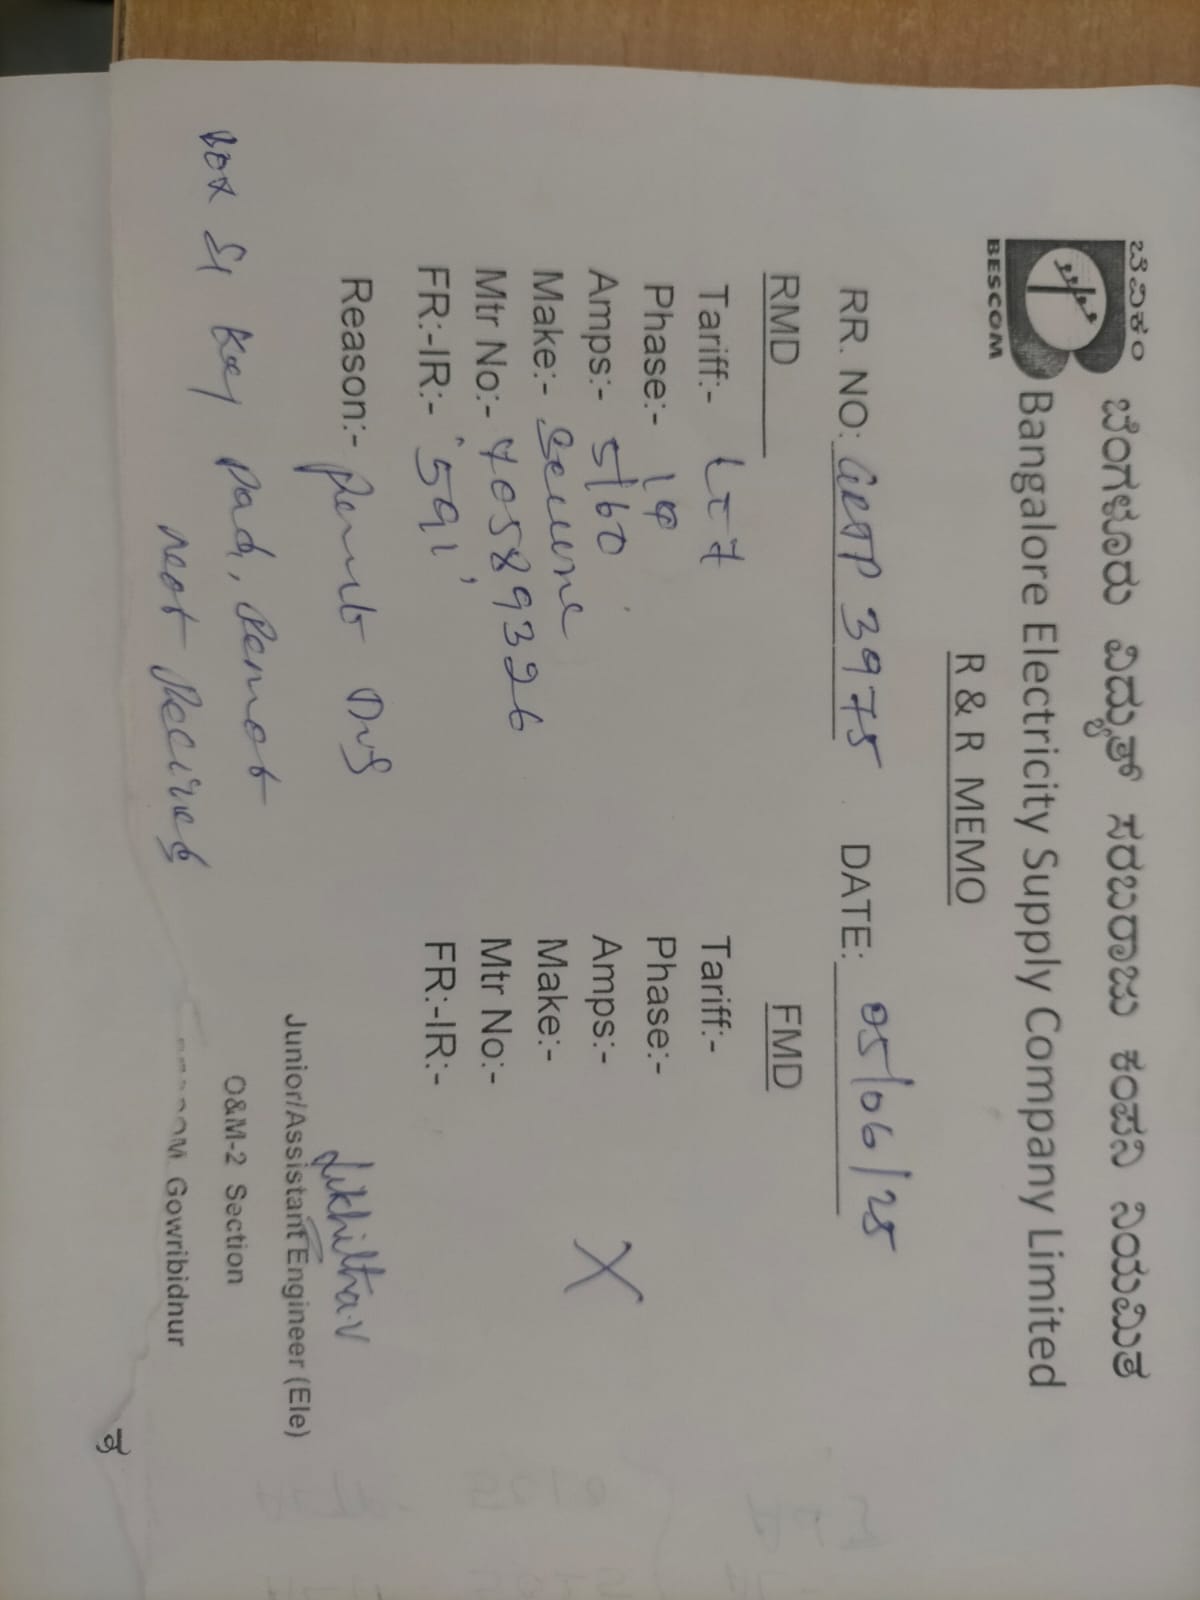 ಬೆವಿಕಂ
BESCOM
ಬೆಂಗಳೂರು ವಿದ್ಯುತ್ ಸರಬರಾಜು ಕಂಪನಿ ನಿಯಮಿತ
Bangalore Electricity Supply Company Limited
R & R MEMO
RR. NO: GRTP 3975 DATE: 05/06/25
RMD FMD
Tariff:- LT7 Tariff:-
Phase:- 1φ Phase:-
Amps:- 5/60 Amps:- X
Make:- Secure Make:-
Mtr No:- 70589326 Mtr No:-
FR:-IR:- 591 FR:-IR:-
Reason:- Dis
Likhitha.V
Junior/Assistant Engineer (Ele)
Box & Key Pad, Remot
O&M-2 Section
not Recived
Gowribidnur